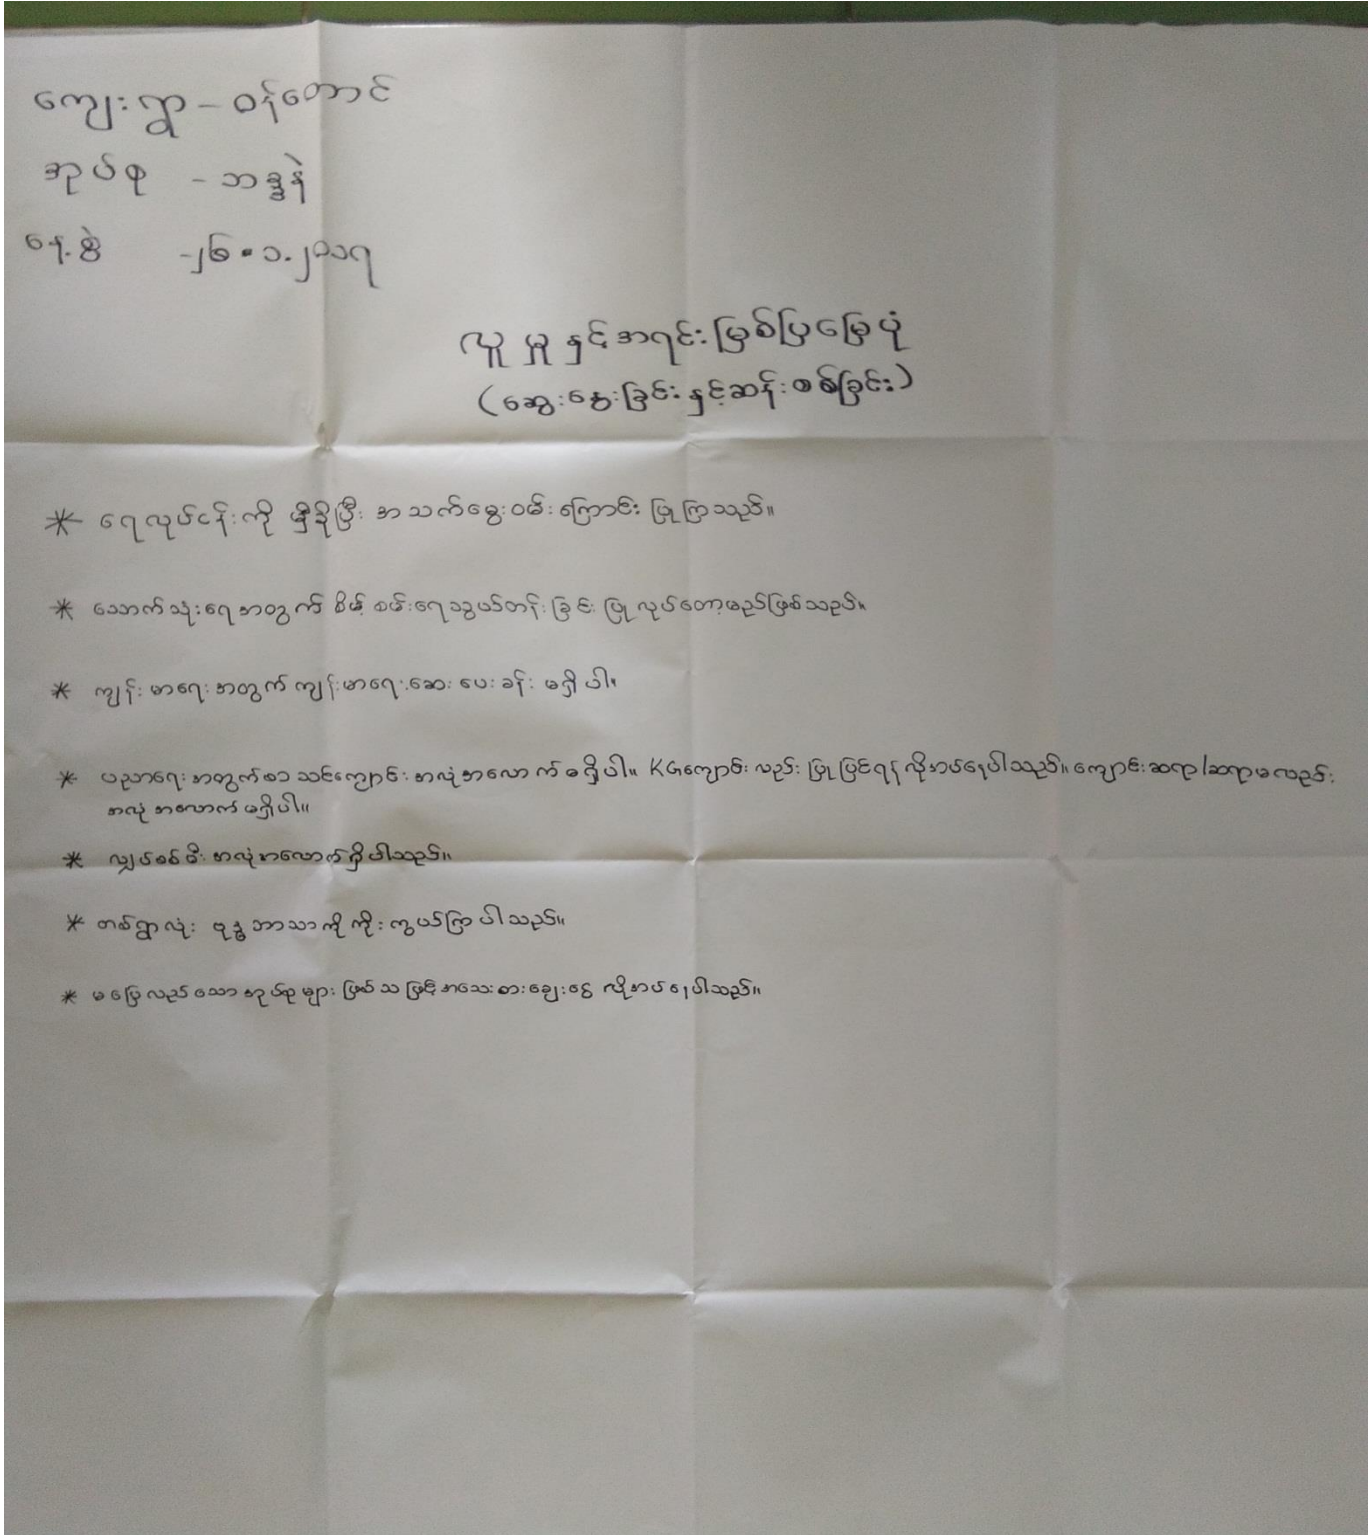 ကျေးရွာ - ဝန်တောင်
အုပ်စု - ဘဒ္ဒနဲ
နေ့စွဲ - ၂၆.၁.၂၀၁၇
လူမှုနှင့်အရင်းမြစ်ပြမြေပုံ
(ဆွေးနွေးခြင်းနှင့်ဆန်းစစ်ခြင်း)
* ရေလုပ်ငန်းကို မှီခိုပြီး အသက်မွေးဝမ်းကြောင်း ပြုကြသည်။
* သောက်သုံးရေအတွက် စိမ့်စမ်းရေသွယ်တန်းခြင်း ပြုလုပ်တော့မည်ဖြစ်သည်။
* ကျန်းမာရေးအတွက် ကျန်းမာရေးဆေးပေးခန်း မရှိပါ။
* ပညာရေးအတွက်စာသင်ကျောင်းအလုံအလောက်မရှိပါ။ KGကျောင်းလည်း ပြုပြင်ရန်လိုအပ်နေပါသည်။ ကျောင်းဆရာ/ဆရာမလည်း
အလုံအလောက်မရှိပါ။
* လျှပ်စစ်မီးအလုံအလောက်ရှိပါသည်။
* တစ်ရွာလုံး ဗုဒ္ဓဘာသာကိုကိုးကွယ်ကြပါသည်။
* မပြေလည်သောအုပ်စုများဖြစ်သဖြင့်အသေးစားချေးငွေ လိုအပ်နေပါသည်။